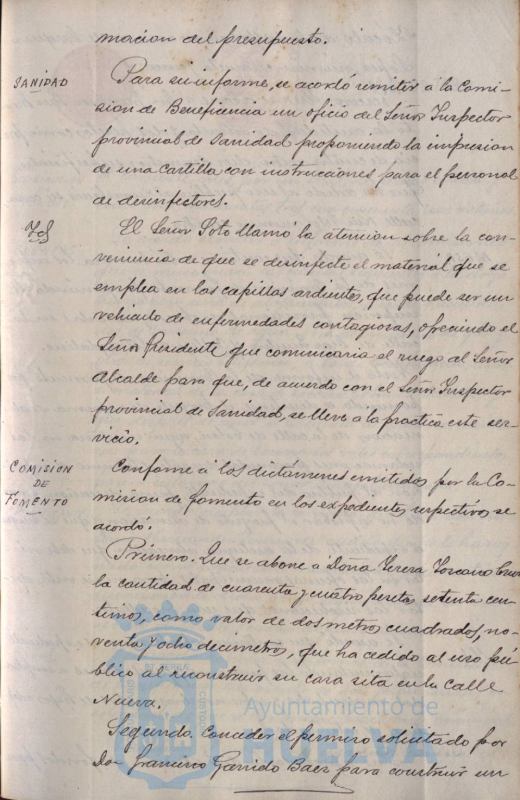 macion del presupuesto.
SANIDAD
Para su informe, se acordó remitir á la Comi-
sion de Beneficencia un oficio del Señor Inspector
provincial de Sanidad proponiendo la impresion
de una Cartilla con instrucciones para el personal
de desinfectores.
Id
El Señor Soto llamó la atencion sobre la con-
veniencia de que se desinfecte el material que se
emplea en las capillas ardientes, que puede ser un
vehiculo de enfermedades contagiosas, ofreciendo el
Señor Presidente que comunicaria el ruego al Señor
Alcalde para que, de acuerdo con el Señor Inspector
provincial de Sanidad, se lleve á la practica este ser-
vicio.
COMISION
DE
FOMENTO
Conforme á los dictámenes emitidos por la Co-
mision de fomento en los expedientes respectivos se
acordó:
Primero. Que se abone á Doña Teresa Toscano
la cantidad de cuarenta y cuatro pesetas setenta cen-
timos, como valor de dos metros cuadrados, no-
venta y ocho decimetros, que ha cedido al uso pú-
blico al reconstruir su casa sita en la calle
Nueva.
Segundo. Conceder el permiso solicitado por
Don Francisco Garrido Baez para construir un
Ayuntamiento de
HUELVA